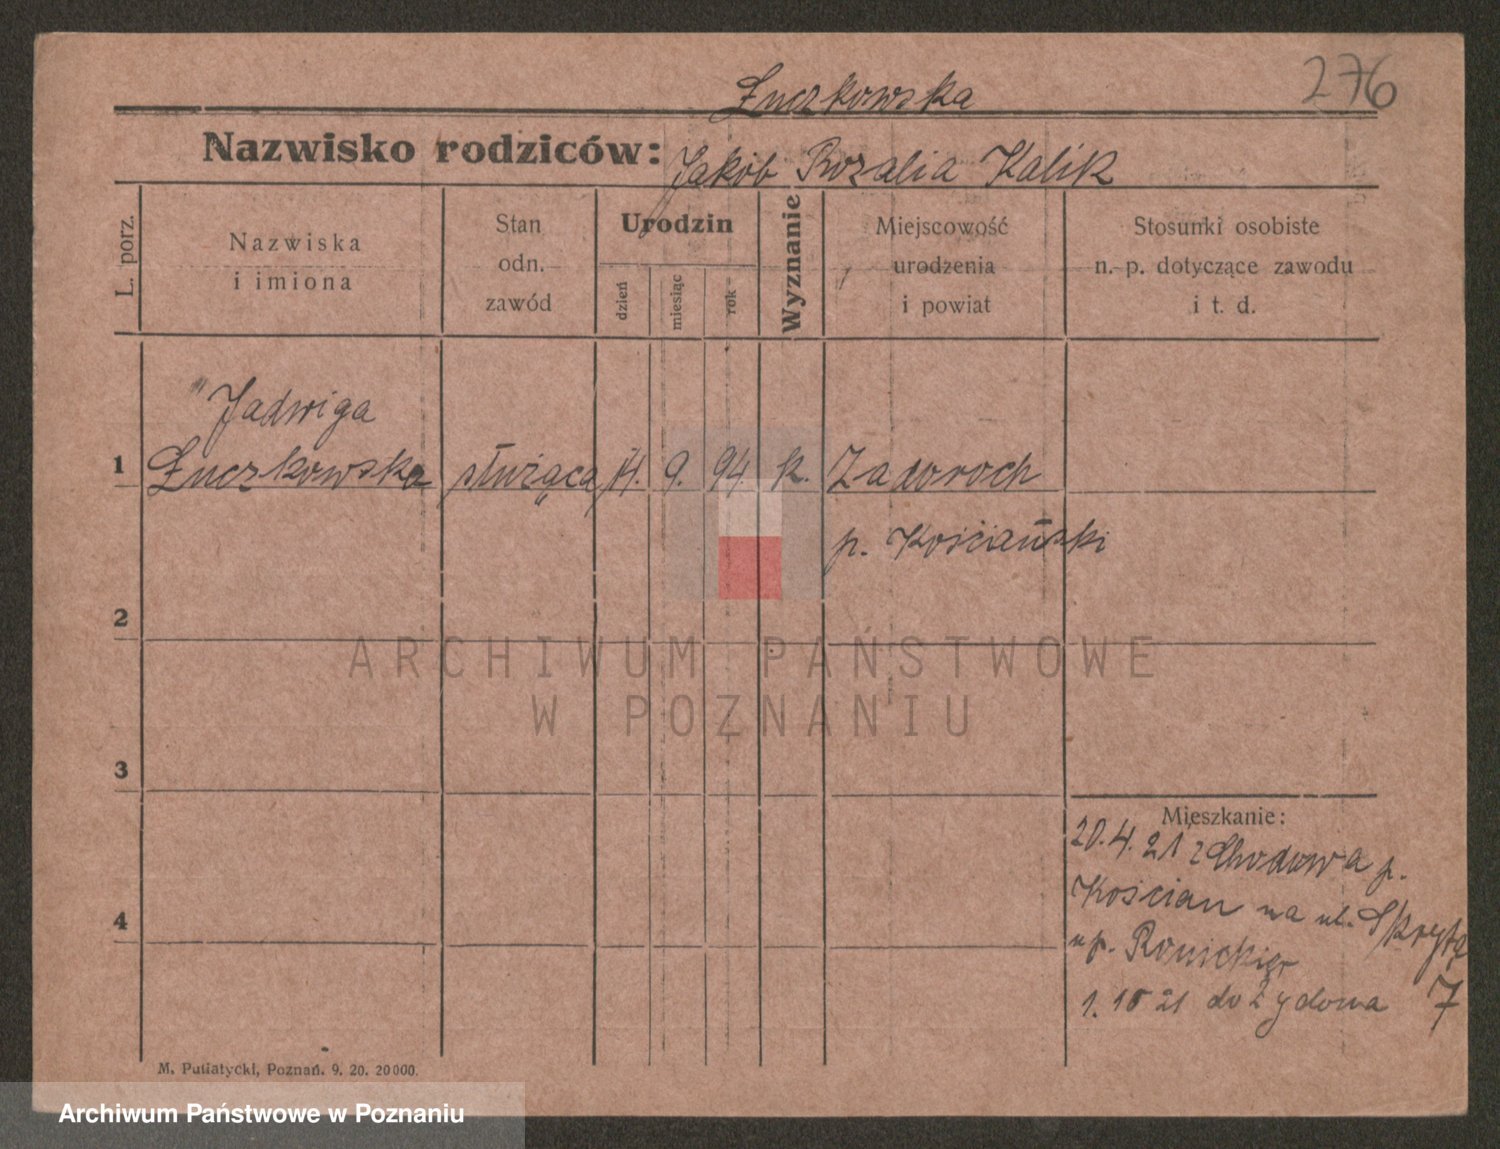 276
Łuczkowska
Nazwisko rodziców: Jakób Rozalia Kalik
L. porz.
Nazwiska
i imiona
Stan
odn.
zawód
Urodzin
dzień
miesiąc
rok
Wyznanie
Miejscowość
urodzenia
i powiat
Stosunki osobiste
n.-p. dotyczące zawodu
i t. d.
Jadwiga
1 Łuczkowska służąca 14. 9. 94. k. Zadoroch
p. Kościański
2
ARCHIWUM PAŃSTWOWE
W POZNANIU
3
4
Mieszkanie:
20.4.21 z Chodowa p.
Kościan na ul. Skrytą
u p. 7
1. 10 21 do Żydowa
M. Putiatycki, Poznań. 9. 20. 20000.
Archiwum Państwowe w Poznaniu